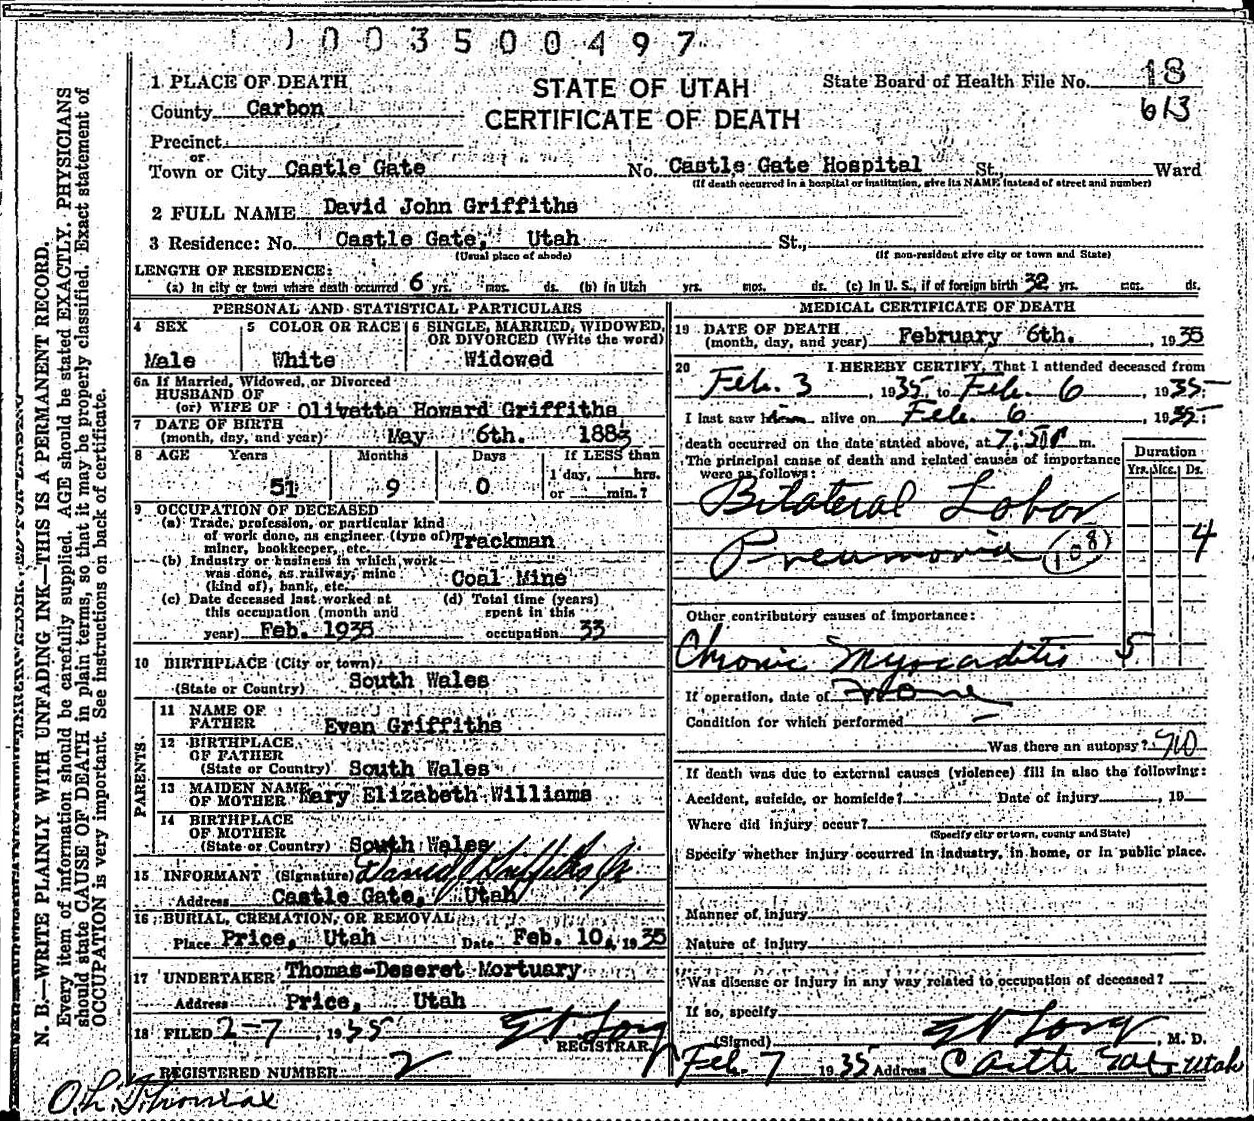 1003500497
STATE OF UTAH
CERTIFICATE OF DEATH
State Board of Health File No. 18
613
1 PLACE OF DEATH
County Carbon
Precinct
or
Town or City Castle Gate No. Castle Gate Hospital St., Ward
(If death occurred in a hospital or institution, give its NAME instead of street and number)
2 FULL NAME David John Griffiths
3 Residence: No. Castle Gate, Utah St.,
(Usual place of abode) (If non-resident give city or town and State)
LENGTH OF RESIDENCE:
(a) In city or town where death occurred 6 yrs. mos. ds. (b) in Utah yrs. mos. ds. (c) In U. S., if of foreign birth 32 yrs. mos. ds.
PERSONAL AND STATISTICAL PARTICULARS
4 SEX Male
5 COLOR OR RACE White
6 SINGLE, MARRIED, WIDOWED, OR DIVORCED (Write the word) Widowed
6a If Married, Widowed, or Divorced
HUSBAND OF
(or) WIFE OF Olivetta Howard Griffiths
7 DATE OF BIRTH
(month, day, and year) May 6th. 1883
8 AGE Years Months Days If LESS than
51 9 0 1 day, hrs.
or min.?
9 OCCUPATION OF DECEASED
(a) Trade, profession, or particular kind
of work done, as engineer (type of)
miner, bookkeeper, etc. Trackman
(b) Industry or business in which work
was done, as railway, mine
(kind of), bank, etc. Coal Mine
(c) Date deceased last worked at
this occupation (month and
year) Feb. 1935
(d) Total time (years)
spent in this
occupation 33
10 BIRTHPLACE (City or town)
(State or Country) South Wales
PARENTS
11 NAME OF
FATHER Evan Griffiths
12 BIRTHPLACE
OF FATHER
(State or Country) South Wales
13 MAIDEN NAME
OF MOTHER Mary Elizabeth Williams
14 BIRTHPLACE
OF MOTHER
(State or Country) South Wales
15 INFORMANT (Signature) David J Griffiths Jr
Address Castle Gate, Utah
16 BURIAL, CREMATION, OR REMOVAL
Place Price, Utah Date Feb. 10, 1935
17 UNDERTAKER Thomas-Deseret Mortuary
Address Price, Utah
18 FILED 2-7, 1935
REGISTRAR.
REGISTERED NUMBER 2
MEDICAL CERTIFICATE OF DEATH
19 DATE OF DEATH
(month, day, and year) February 6th. , 1935
20 I HEREBY CERTIFY, That I attended deceased from
Feb. 3, 1935 to Feb. 6, 1935
I last saw him alive on Feb. 6, 1935
death occurred on the date stated above, at m.
The principal cause of death and related causes of importance
were as follows:
Duration
Yrs. Mos. Ds.
Bilateral Lobar
Pneumonia (108) 4
Other contributory causes of importance:
Chronic Myocarditis 5
If operation, date of None
Condition for which performed —
Was there an autopsy? no
If death was due to external causes (violence) fill in also the following:
Accident, suicide, or homicide? Date of injury , 19
Where did injury occur?
(Specify city or town, county and State)
Specify whether injury occurred in industry, in home, or in public place.
Manner of injury
Nature of injury
Was disease or injury in any way related to occupation of deceased?
If so, specify
(Signed) , M. D.
Feb. 7 1935 Address Castle Gate, Utah
N. B.—WRITE PLAINLY WITH UNFADING INK—THIS IS A PERMANENT RECORD.
Every item of information should be carefully supplied. AGE should be stated EXACTLY. PHYSICIANS
should state CAUSE OF DEATH in plain terms, so that it may be properly classified. Exact statement of
OCCUPATION is very important. See instructions on back of certificate.